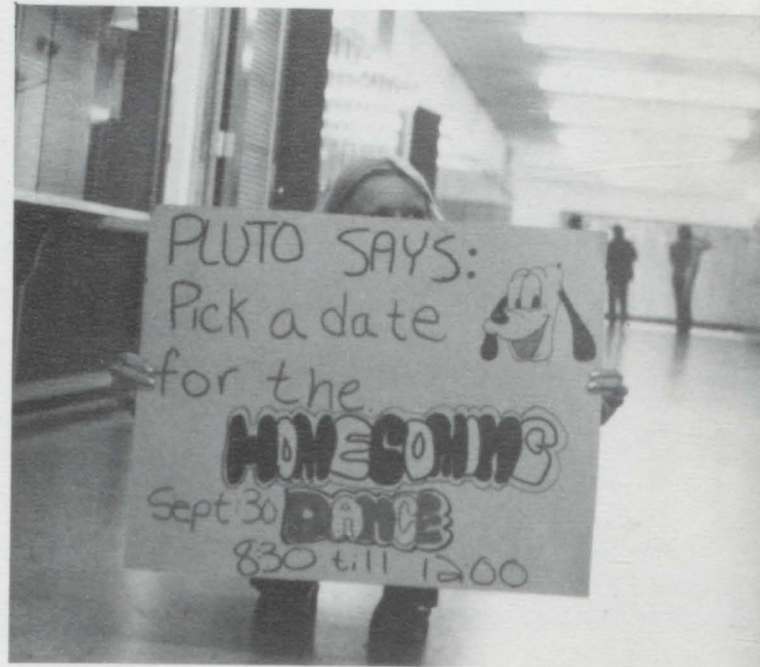 PLUTO SAYS:
Pick a date
for the
HOMECOMING
Sept 30 DANCE
8:30 till 12:00